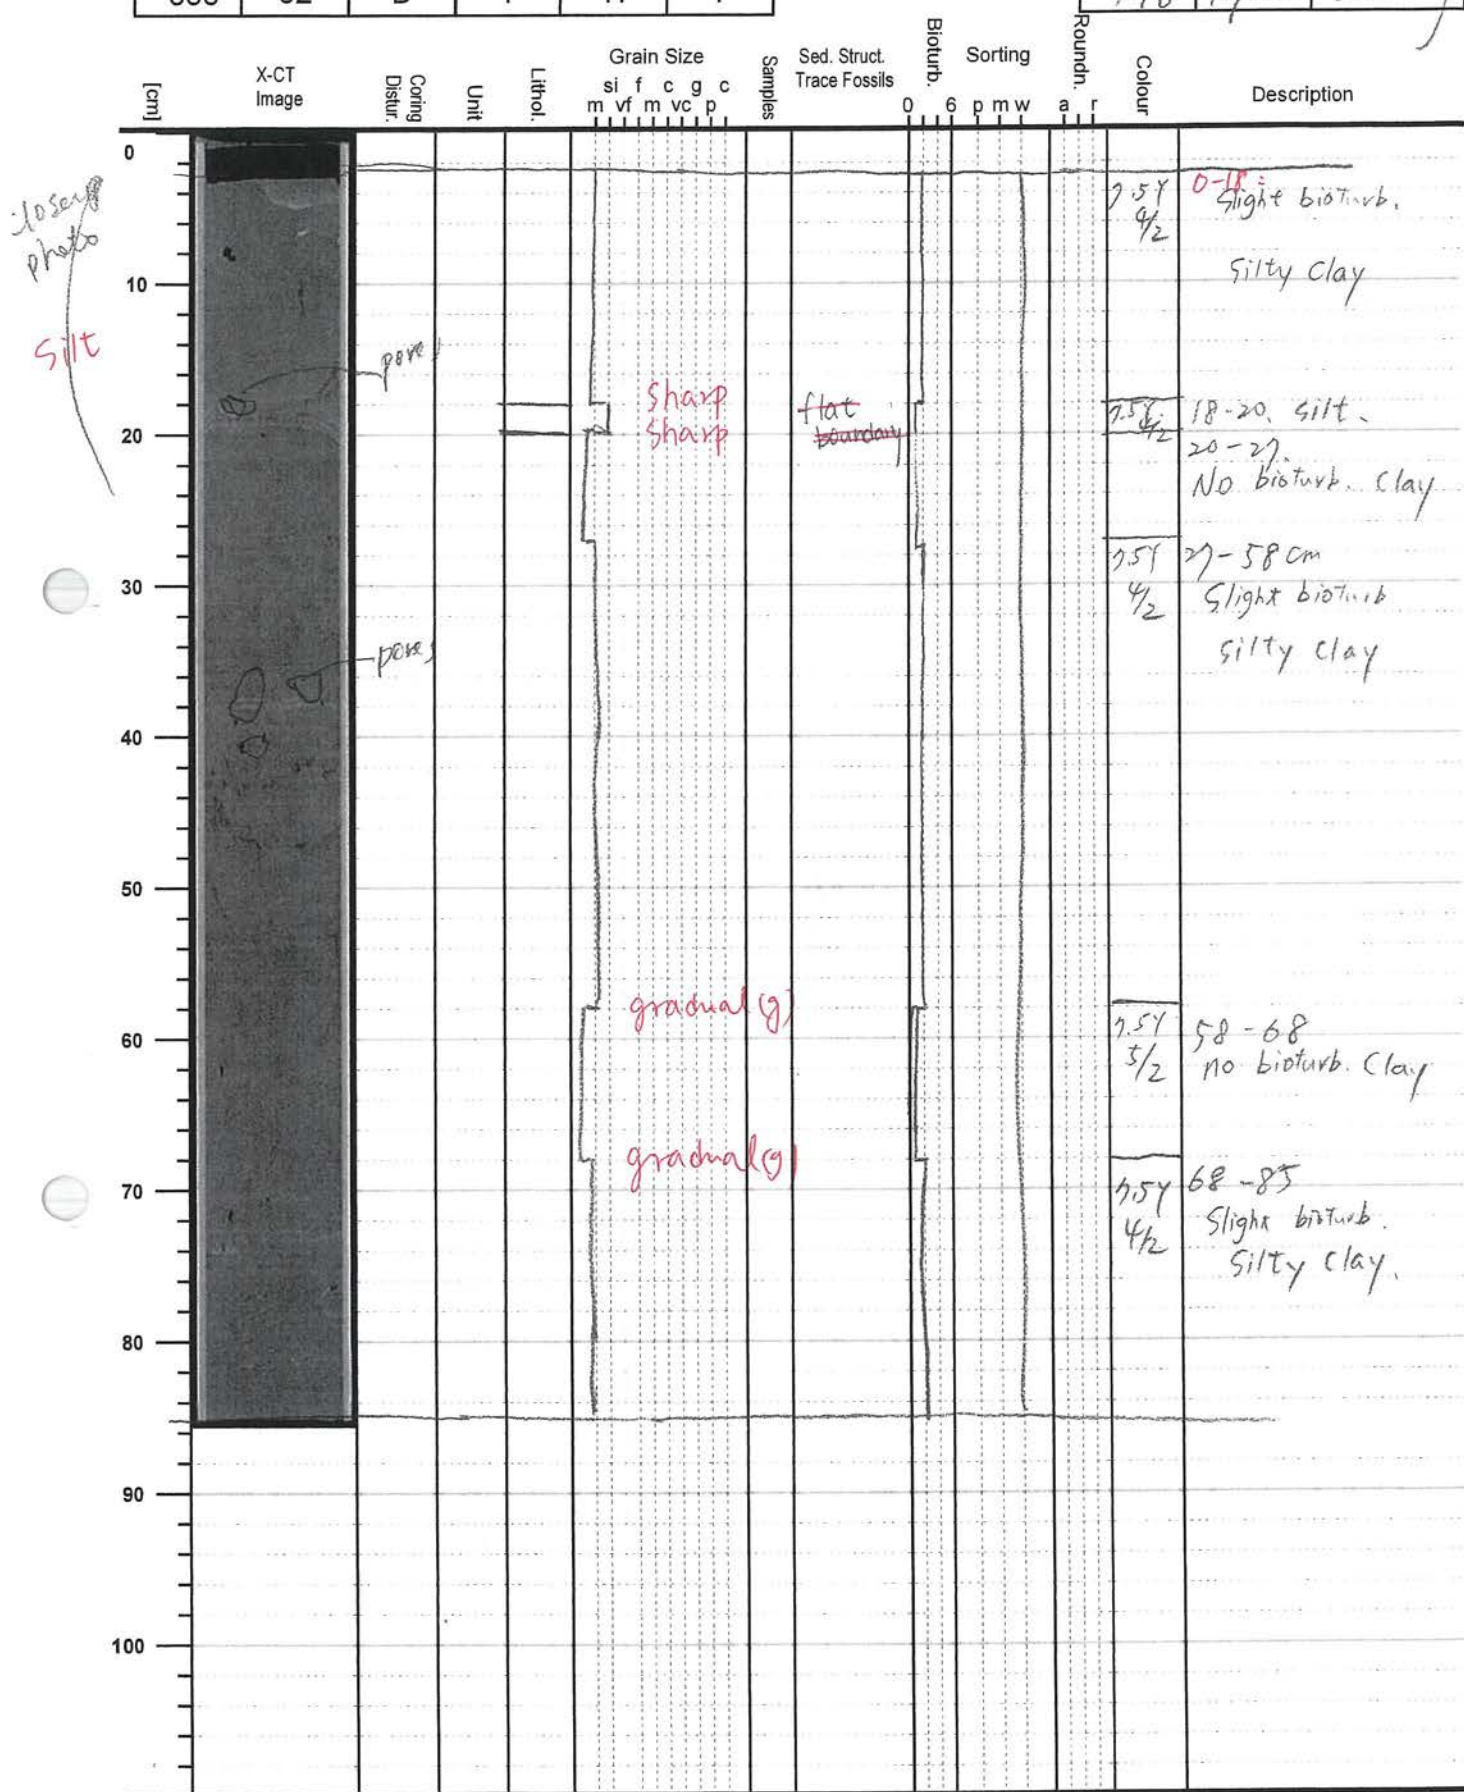 [cm]
X-CT
Image
Coring
Distur.
Unit
Lithol.
Grain Size
si f c g c
m vf m vc p
Samples
Sed. Struct.
Trace Fossils
Bioturb.
0 6
Sorting
p m w
Roundn.
a r
Colour
Description
0
10
20
30
40
50
60
70
80
90
100
photo
Silt
pores
pores
Sharp
Sharp
flat
boundary
gradual (g)
gradual (g)
7.5Y
4/2
0-18:
Slight bioturb.
Silty Clay
7.5Y
4/2
18-20. silt.
20-27.
No bioturb. Clay
7.5Y
4/2
27-58 cm
Slight bioturb
Silty Clay
7.5Y
5/2
58-68
no bioturb. Clay
7.5Y
4/2
68-85
Slight bioturb.
Silty Clay.